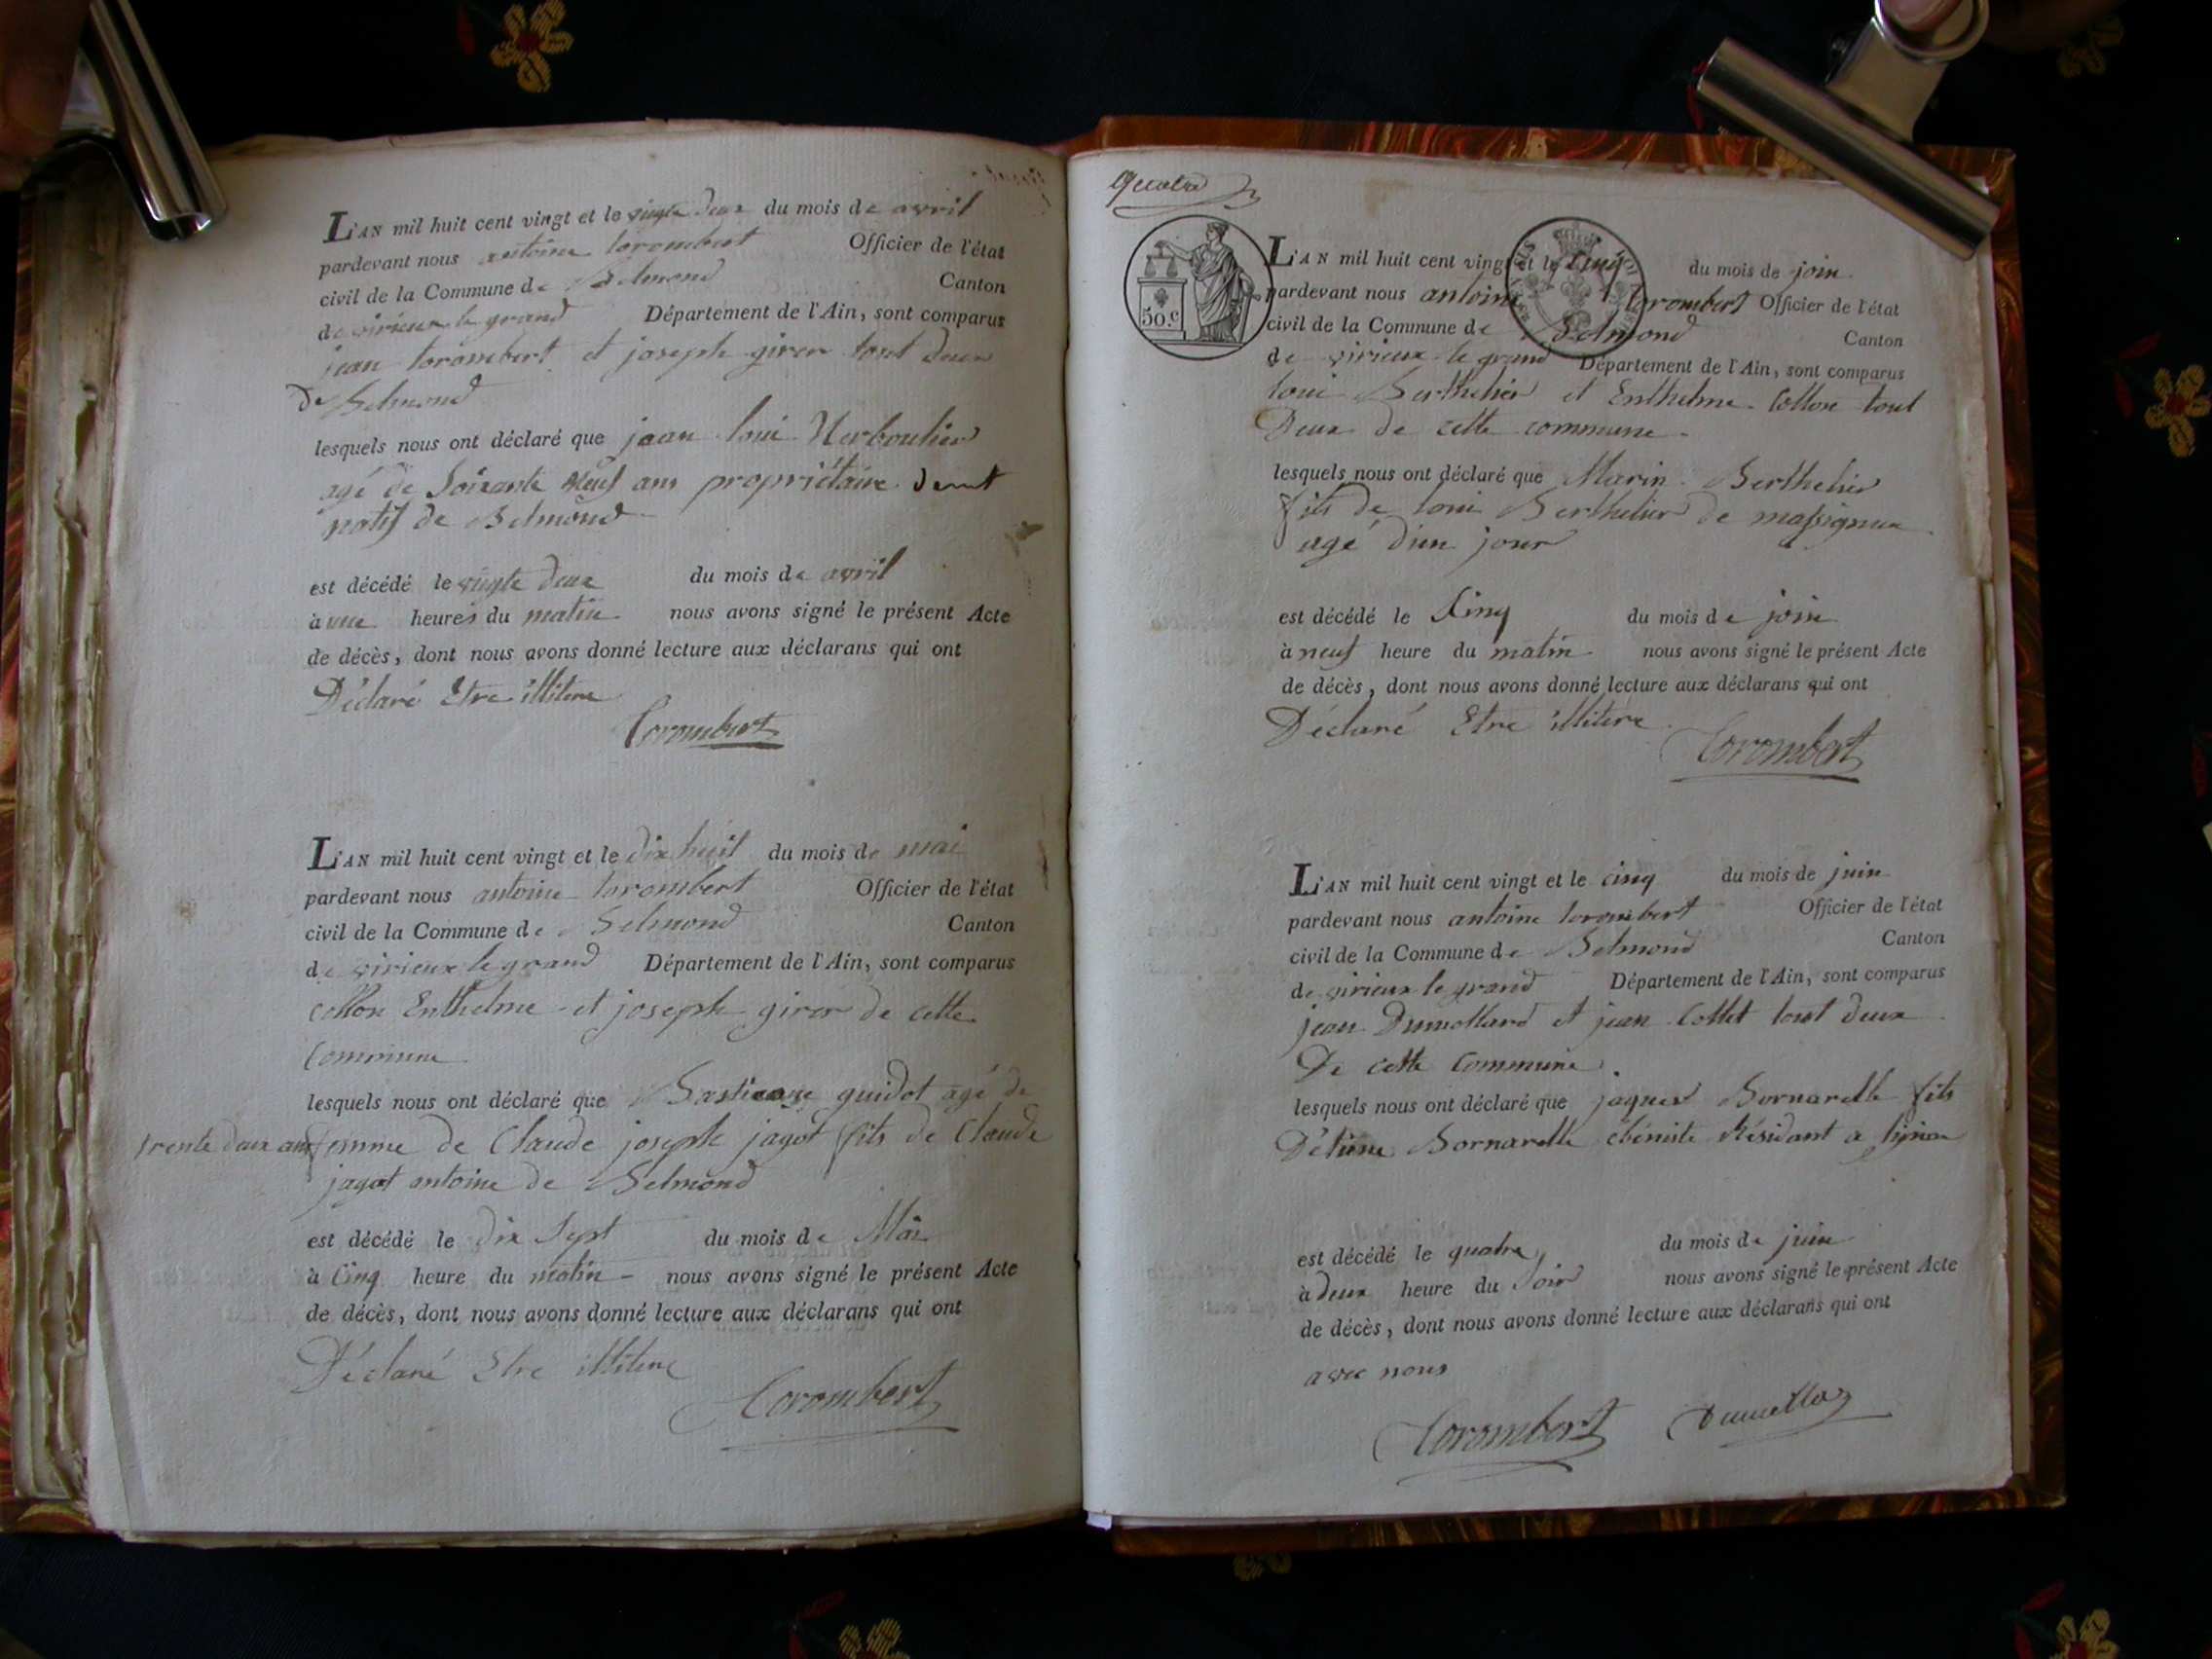 L'AN mil huit cent vingt et le vingte deux du mois de avril
pardevant nous antoine Corombert Officier de l'état
civil de la Commune de Belmond Canton
de virieux le grand Département de l'Ain, sont comparus
jean Corombert et joseph girer tout deux
de Belmond
lesquels nous ont déclaré que jean loui
agé de Soixante Neuf ans propriétaire
natif de Belmond
est décédé le vingte deux du mois de avril
à une heures du matin nous avons signé le présent Acte
de décès, dont nous avons donné lecture aux déclarans qui ont
Déclaré Etre illitere
Corombert
L'AN mil huit cent vingt et le dix huit du mois de mai
pardevant nous antoine Corombert Officier de l'état
civil de la Commune de Belmond Canton
de virieux le grand Département de l'Ain, sont comparus
Collon Enthelme et joseph girer de cette
Commune
lesquels nous ont déclaré que guidot agé de
trente deux ans femme de Claude joseph jagot fils de Claude
jagot antoine de Belmond
est décédé le dix Sept du mois de Mai
à Cinq heure du matin - nous avons signé le présent Acte
de décès, dont nous avons donné lecture aux déclarans qui ont
Déclaré Etre illitere
Corombert
Quatre
50.c
L'AN mil huit cent vingt et le Cinq du mois de join
pardevant nous antoine Corombert Officier de l'état
civil de la Commune de Belmond Canton
de virieux le grand Département de l'Ain, sont comparus
loui Berthelier et Enthelme Collon tout
Deux de cette commune -
lesquels nous ont déclaré que Marin Berthelier
fils de loui Berthelier de massignux
agé d'un jour
est décédé le Cinq du mois de join
à neuf heure du matin nous avons signé le présent Acte
de décès, dont nous avons donné lecture aux déclarans qui ont
Déclaré Etre illitere
Corombert
L'AN mil huit cent vingt et le cinq du mois de juin
pardevant nous antoine Corombert Officier de l'état
civil de la Commune de Belmond Canton
de virieux le grand Département de l'Ain, sont comparus
jean Dumollard et jean Collet tout deux
De cette Commune
lesquels nous ont déclaré que jaques Bornarelle fils
D'étiene Bornarelle ébéniste Résidant a
est décédé le quatre du mois de juin
à deux heure du Soir nous avons signé le présent Acte
de décès, dont nous avons donné lecture aux déclarans qui ont
avec nous
Corombert